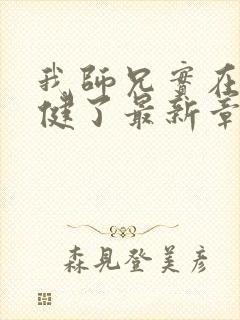 我師兄實在
健了最新章
森見登美彥